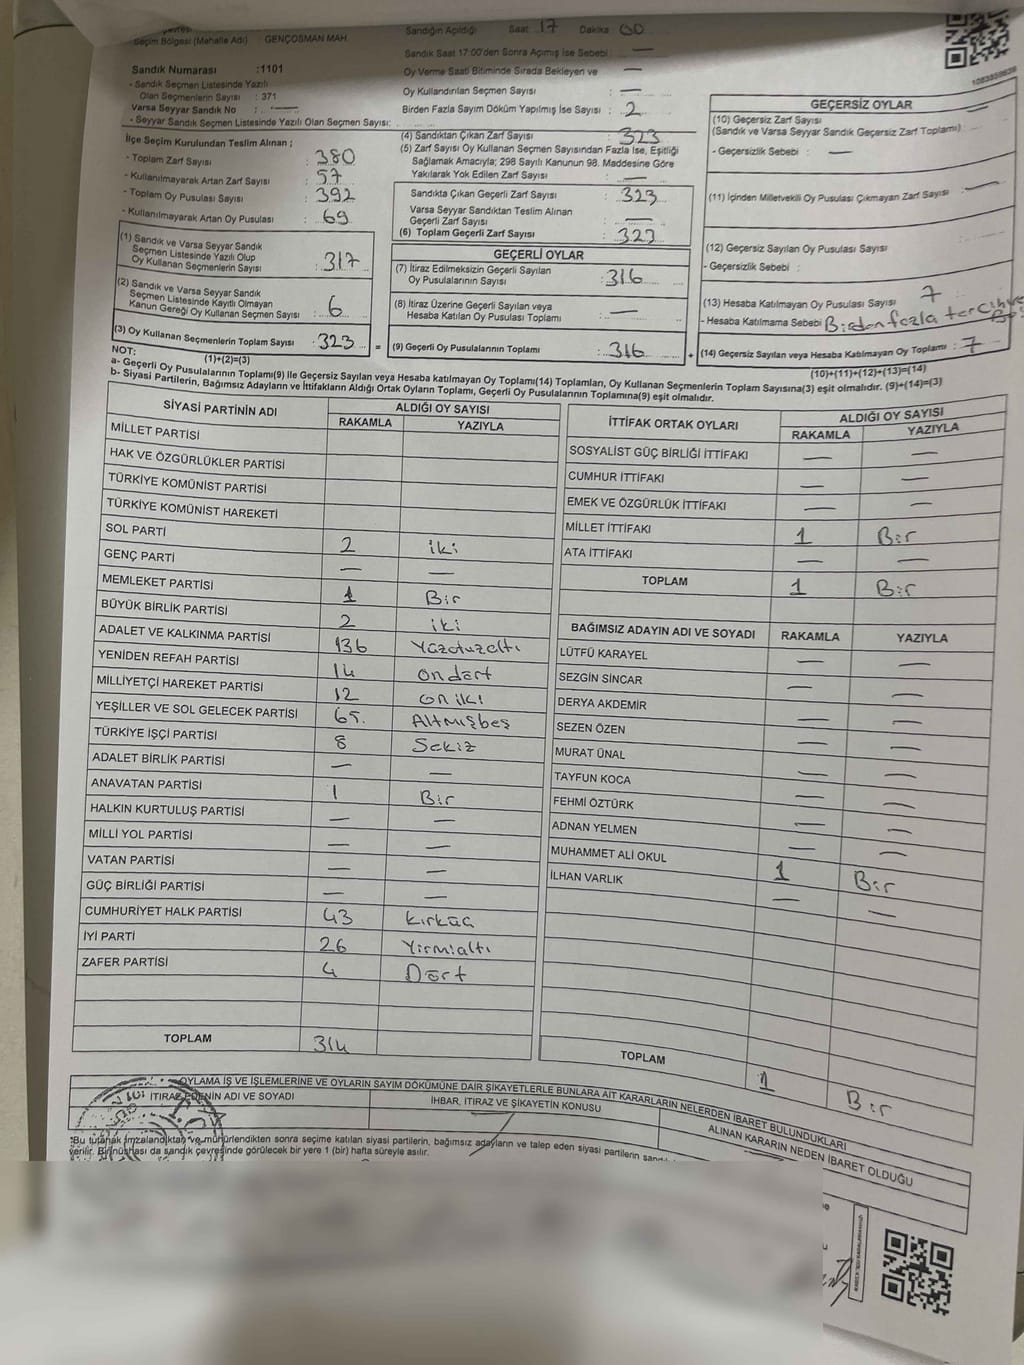 Seçim Bölgesi (Mahalle Adı) : GENÇOSMAN MAH.
Sandık Numarası :1101
- Sandık Seçmen Listesinde Yazılı
Olan Seçmenlerin Sayısı : 371
Varsa Seyyar Sandık No : —
- Seyyar Sandık Seçmen Listesinde Yazılı Olan Seçmen Sayısı:
İlçe Seçim Kurulundan Teslim Alınan ;
- Toplam Zarf Sayısı : 380
- Kullanılmayarak Artan Zarf Sayısı : 57
- Toplam Oy Pusulası Sayısı : 392
- Kullanılmayarak Artan Oy Pusulası : 69
(1) Sandık ve Varsa Seyyar Sandık
Seçmen Listesinde Yazılı Olup
Oy Kullanan Seçmenlerin Sayısı : 317
(2) Sandık ve Varsa Seyyar Sandık
Seçmen Listesinde Kayıtlı Olmayan
Kanun Gereği Oy Kullanan Seçmen Sayısı : 6
(3) Oy Kullanan Seçmenlerin Toplam Sayısı : 323 =
(1)+(2)=(3)
Sandığın Açıldığı Saat 17 Dakika 00
Sandık Saat 17:00'den Sonra Açımış İse Sebebi : —
Oy Verme Saati Bitiminde Sırada Bekleyen ve —
Oy Kullandırılan Seçmen Sayısı : —
Birden Fazla Sayım Döküm Yapılmış İse Sayısı : 2
(4) Sandıktan Çıkan Zarf Sayısı : 323
(5) Zarf Sayısı Oy Kullanan Seçmen Sayısından Fazla İse, Eşitliği
Sağlamak Amacıyla; 298 Sayılı Kanunun 98. Maddesine Göre
Yakılarak Yok Edilen Zarf Sayısı : —
Sandıkta Çıkan Geçerli Zarf Sayısı : 323
Varsa Seyyar Sandıktan Teslim Alınan
Geçerli Zarf Sayısı : —
(6) Toplam Geçerli Zarf Sayısı : 323
GEÇERLİ OYLAR
(7) İtiraz Edilmeksizin Geçerli Sayılan
Oy Pusulalarının Sayısı : 316
(8) İtiraz Üzerine Geçerli Sayılan veya
Hesaba Katılan Oy Pusulası Toplamı : —
(9) Geçerli Oy Pusulalarının Toplamı : 316 +
1083859639
GEÇERSİZ OYLAR
(10) Geçersiz Zarf Sayısı —
(Sandık ve Varsa Seyyar Sandık Geçersiz Zarf Toplamı)
- Geçersizlik Sebebi : —
(11) İçinden Milletvekili Oy Pusulası Çıkmayan Zarf Sayısı : —
(12) Geçersiz Sayılan Oy Pusulası Sayısı
- Geçersizlik Sebebi :
(13) Hesaba Katılmayan Oy Pusulası Sayısı 7
- Hesaba Katılmama Sebebi Birden fazla tercihve
(14) Geçersiz Sayılan veya Hesaba Katılmayan Oy Toplamı : 7
(10)+(11)+(12)+(13)=(14)
NOT:
a- Geçerli Oy Pusulalarının Toplamı(9) ile Geçersiz Sayılan veya Hesaba katılmayan Oy Toplamı(14) Toplamları, Oy Kullanan Seçmenlerin Toplam Sayısına(3) eşit olmalıdır. (9)+(14)=(3)
b- Siyasi Partilerin, Bağımsız Adayların ve İttifakların Aldığı Ortak Oyların Toplamı, Geçerli Oy Pusulalarının Toplamına(9) eşit olmalıdır.
SİYASİ PARTİNİN ADI ALDIĞI OY SAYISI
RAKAMLA YAZIYLA
MİLLET PARTİSİ
HAK VE ÖZGÜRLÜKLER PARTİSİ
TÜRKİYE KOMÜNİST PARTİSİ
TÜRKİYE KOMÜNİST HAREKETİ
SOL PARTİ 2 iki
GENÇ PARTİ — —
MEMLEKET PARTİSİ 1 Bir
BÜYÜK BİRLİK PARTİSİ 2 iki
ADALET VE KALKINMA PARTİSİ 136 Yüzotuzaltı
YENİDEN REFAH PARTİSİ 14 ondört
MİLLİYETÇİ HAREKET PARTİSİ 12 oniki
YEŞİLLER VE SOL GELECEK PARTİSİ 65. Altmışbeş
TÜRKİYE İŞÇİ PARTİSİ 8 Sekiz
ADALET BİRLİK PARTİSİ — —
ANAVATAN PARTİSİ 1 Bir
HALKIN KURTULUŞ PARTİSİ — —
MİLLİ YOL PARTİSİ — —
VATAN PARTİSİ — —
GÜÇ BİRLİĞİ PARTİSİ — —
CUMHURİYET HALK PARTİSİ 43 Kırküç
İYİ PARTİ 26 Yirmialtı
ZAFER PARTİSİ 4 Dört
TOPLAM 314
İTTİFAK ORTAK OYLARI ALDIĞI OY SAYISI
RAKAMLA YAZIYLA
SOSYALİST GÜÇ BİRLİĞİ İTTİFAKI — —
CUMHUR İTTİFAKI — —
EMEK VE ÖZGÜRLÜK İTTİFAKI — —
MİLLET İTTİFAKI 1 Bir
ATA İTTİFAKI — —
TOPLAM 1 Bir
BAĞIMSIZ ADAYIN ADI VE SOYADI RAKAMLA YAZIYLA
LÜTFÜ KARAYEL — —
SEZGİN SİNCAR — —
DERYA AKDEMİR — —
SEZEN ÖZEN — —
MURAT ÜNAL — —
TAYFUN KOCA — —
FEHMİ ÖZTÜRK — —
ADNAN YELMEN — —
MUHAMMET ALİ OKUL 1 Bir
İLHAN VARLIK — —
TOPLAM 1 Bir
OYLAMA İŞ VE İŞLEMLERİNE VE OYLARIN SAYIM DÖKÜMÜNE DAİR ŞİKAYETLERLE BUNLARA AİT KARARLARIN NELERDEN İBARET BULUNDUKLARI
İTİRAZ EDENİN ADI VE SOYADI İHBAR, İTİRAZ VE ŞİKAYETİN KONUSU ALINAN KARARIN NEDEN İBARET OLDUĞU
*Bu tutanak imzalandıktan ve mühürlendikten sonra seçime katılan siyasi partilerin, bağımsız adayların ve talep eden siyasi partilerin
verilir. Bir nüshası da sandık çevresinde görülecek bir yere 1 (bir) hafta süreyle asılır.